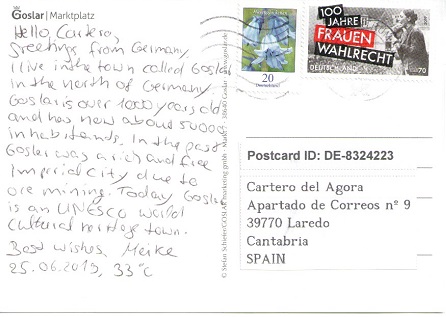 Goslar | Marktplatz
Hello, Cartero,
Greetings from Germany
I live in the town called Goslar
in the north of Germany
Goslar is over 1000 years old
and has now about 50000
inhabitands. In the past
Goslar was a rich and free
Imperial City due to
ore mining. Today Goslar
is an UNESCO world
Cultural heritage town.
Best wishes, Meike
25.06.2019, 33°C
20
Deutschland
100
JAHRE
FRAUEN
WAHLRECHT
DEUTSCHLAND
70
Postcard ID: DE-8324223
Cartero del Agora
Apartado de Correos nº 9
39770 Laredo
Cantabria
SPAIN